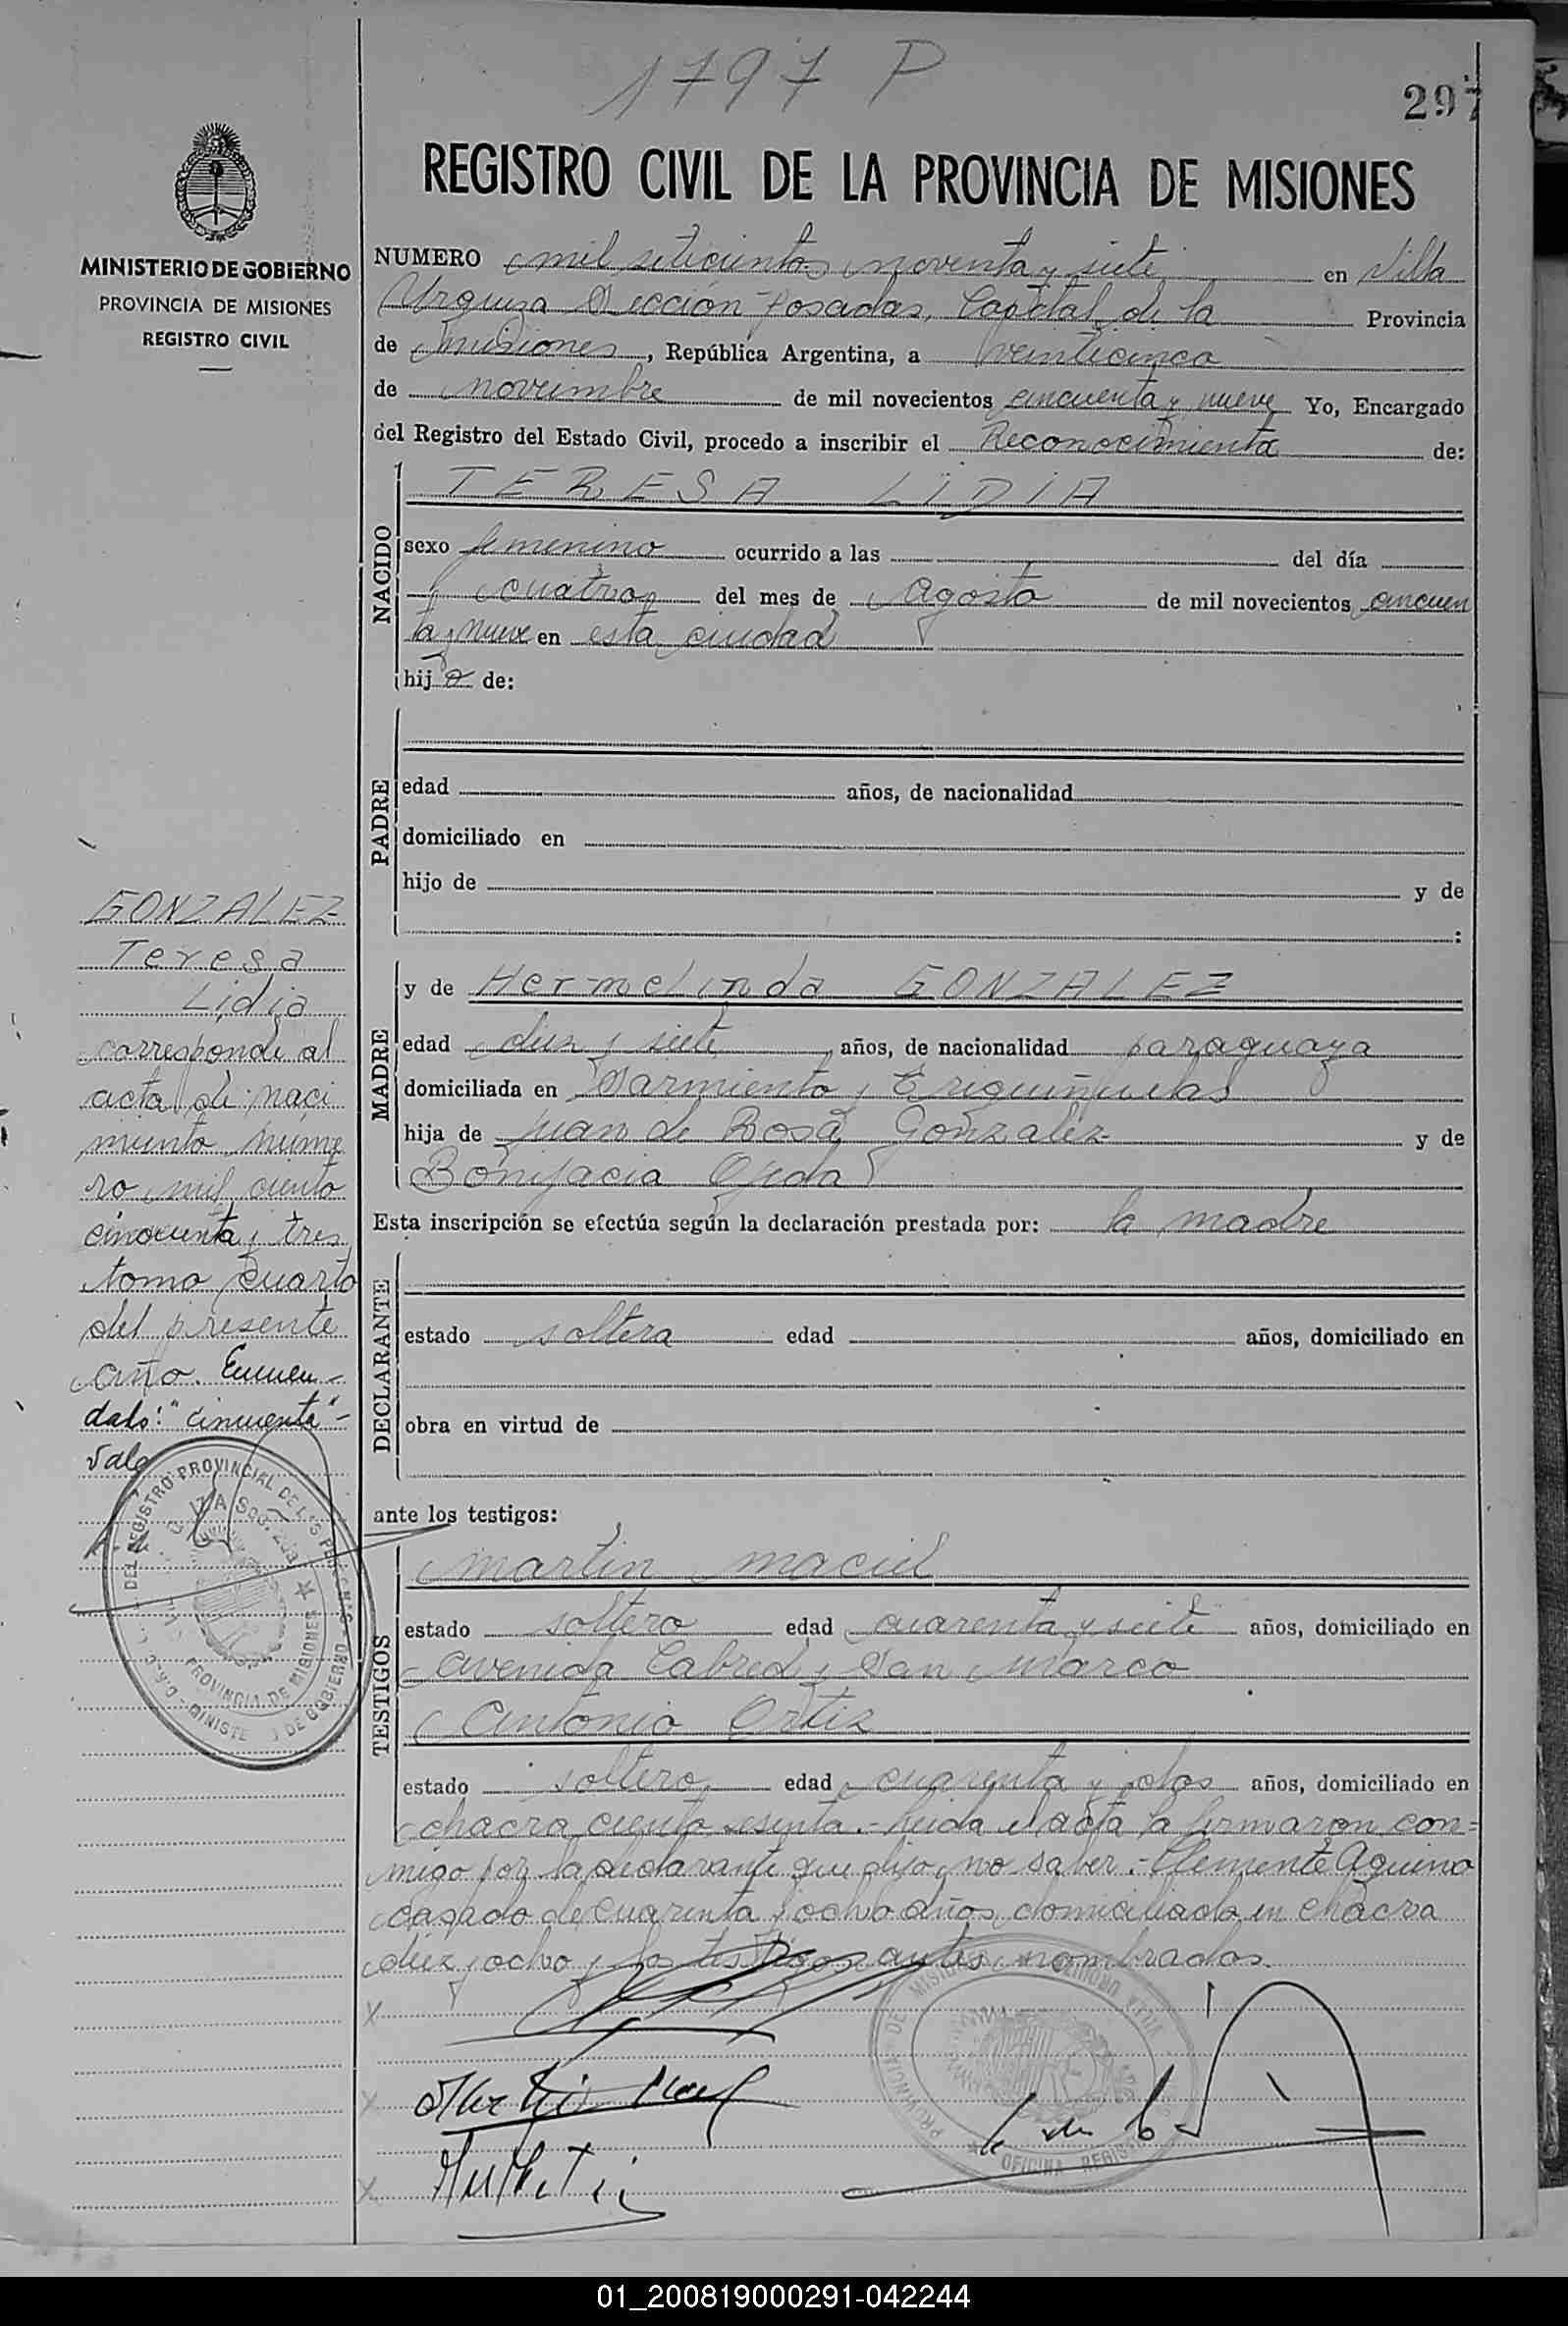 1797 P
297
MINISTERIO DE GOBIERNO
PROVINCIA DE MISIONES
REGISTRO CIVIL
REGISTRO CIVIL DE LA PROVINCIA DE MISIONES
NUMERO mil seticientos noventa y siete en Villa
Urquiza Sección Posadas, Capital de la Provincia
de Misiones, República Argentina, a veinticinco
de noviembre de mil novecientos cincuenta y nueve Yo, Encargado
del Registro del Estado Civil, procedo a inscribir el Reconocimiento de:
NACIDO
TERESA LIDIA
sexo femenino ocurrido a las del día
cuatro del mes de Agosto de mil novecientos cincuen
ta y nueve en esta ciudad
hija de:
PADRE
edad años, de nacionalidad
domiciliado en
hijo de y de
:
MADRE
y de Hermelinda GONZALEZ
edad diez y siete años, de nacionalidad paraguaya
domiciliada en Sarmiento y
hija de Juan de Rosa Gonzalez y de
Bonifacia Ojeda
Esta inscripción se efectúa según la declaración prestada por: la madre
DECLARANTE
estado soltera edad años, domiciliado en
obra en virtud de
ante los testigos:
TESTIGOS
Martin Maciel
estado soltero edad cuarenta y siete años, domiciliado en
Avenida Cabred y San Marco
Antonio Ortiz
estado soltero edad cuarenta y dos años, domiciliado en
chacra ciento sesenta.- Leida el acta la firmaron con=
migo por la declarante que dijo no saber.- Clemente Aquino
casado de cuarenta y ocho años, domiciliado en chacra
diez y ocho y los testigos antes nombrados.
GONZALEZ
Teresa
Lidia
corresponde al
acta de naci
miento núme
ro mil ciento
cincuenta y tres
tomo cuarto
del presente
año. Enmen-
dado: "cincuenta"-
Vale
01_200819000291-042244